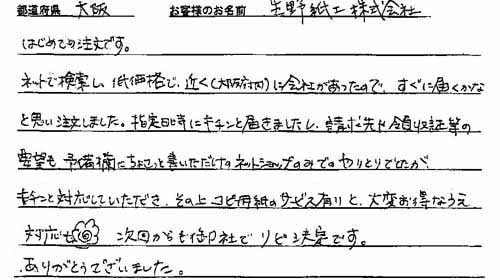 都道府県 大阪 お客様のお名前 矢野紙工株式会社
はじめての注文です。
ネットで検索し、低価格で、近く(大阪府内)に会社があったので、すぐに届くかな
と思い注文しました。指定日時にキチンと届きましたし、請求先や領収証等の
要望も、予備欄にちょこっと書いただけのネットショップのみでのやりとりでしたが、
キチンと対応していただき、その上コピー用紙のサービス有りと、大変お得なうえ
対応も◎ 次回からも御社でリピ決定です。
ありがとうございました。